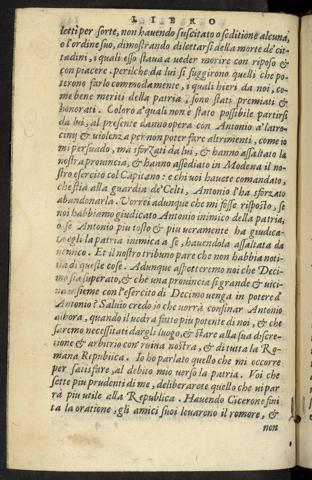 LIBRO
letti per sorte, non hauendo suscitato o seditione alcuna,
o l'ordine suo, dimostrando dilettarsi della morte de' cit-
tadini, i quali esso staua a ueder morire con riposo &
con piacere. perilche, da lui si fuggirono quelli che po-
terono farlo commodamente, i quali hieri da noi, co-
me bene meriti della patria, sono stati premiati &
honorati. Coloro a' quali non è stato possibile partirsi
da lui, al presente danno opera con Antonio a' latro-
cinij & uiolenza per non poter fare altrimenti, come io
mi persuado, ma sforzati da lui, & hanno assaltato la
nostra prouincia, & hanno assediato in Modena il no-
stro esercito col Capitano: e chi uoi hauete comandato,
che stia alla guardia de' Celti, Antonio l'ha sforzato
abandonarla. Vorrei adunque che mi fosse risposto, se
noi habbiamo giudicato Antonio inimico della patria,
o se Antonio piu tosto & piu ueramente ha giudica-
to egli la patria inimica a se, hauendola assaltata da
nemico. Et il nostro tribuno pare che non habbia noti-
tia di queste cose. Adunque aspetteremo noi che Deci-
mo sia superato, & che una prouincia sì grande & uici-
na insieme con l'esercito di Decimo uenga in potere d'
Antonio? Saluio credo io che uorrà confinar Antonio
alhora, quando il uedrà fatto piu potente di noi, & che
saremo necessitati dargli luogo, & stare alla sua discre-
tione & arbitrio con ruina nostra, & di tutta la Ro-
mana Republica. Io ho parlato quello che mi occorre
per satisfare, al debito mio uerso la patria. Voi che
sette piu prudenti di me, deliberarete quello che ui par
rà piu utile alla Republica. Hauendo Cicerone fini
ta la oratione, gli amici suoi leuarono il romore, &
non